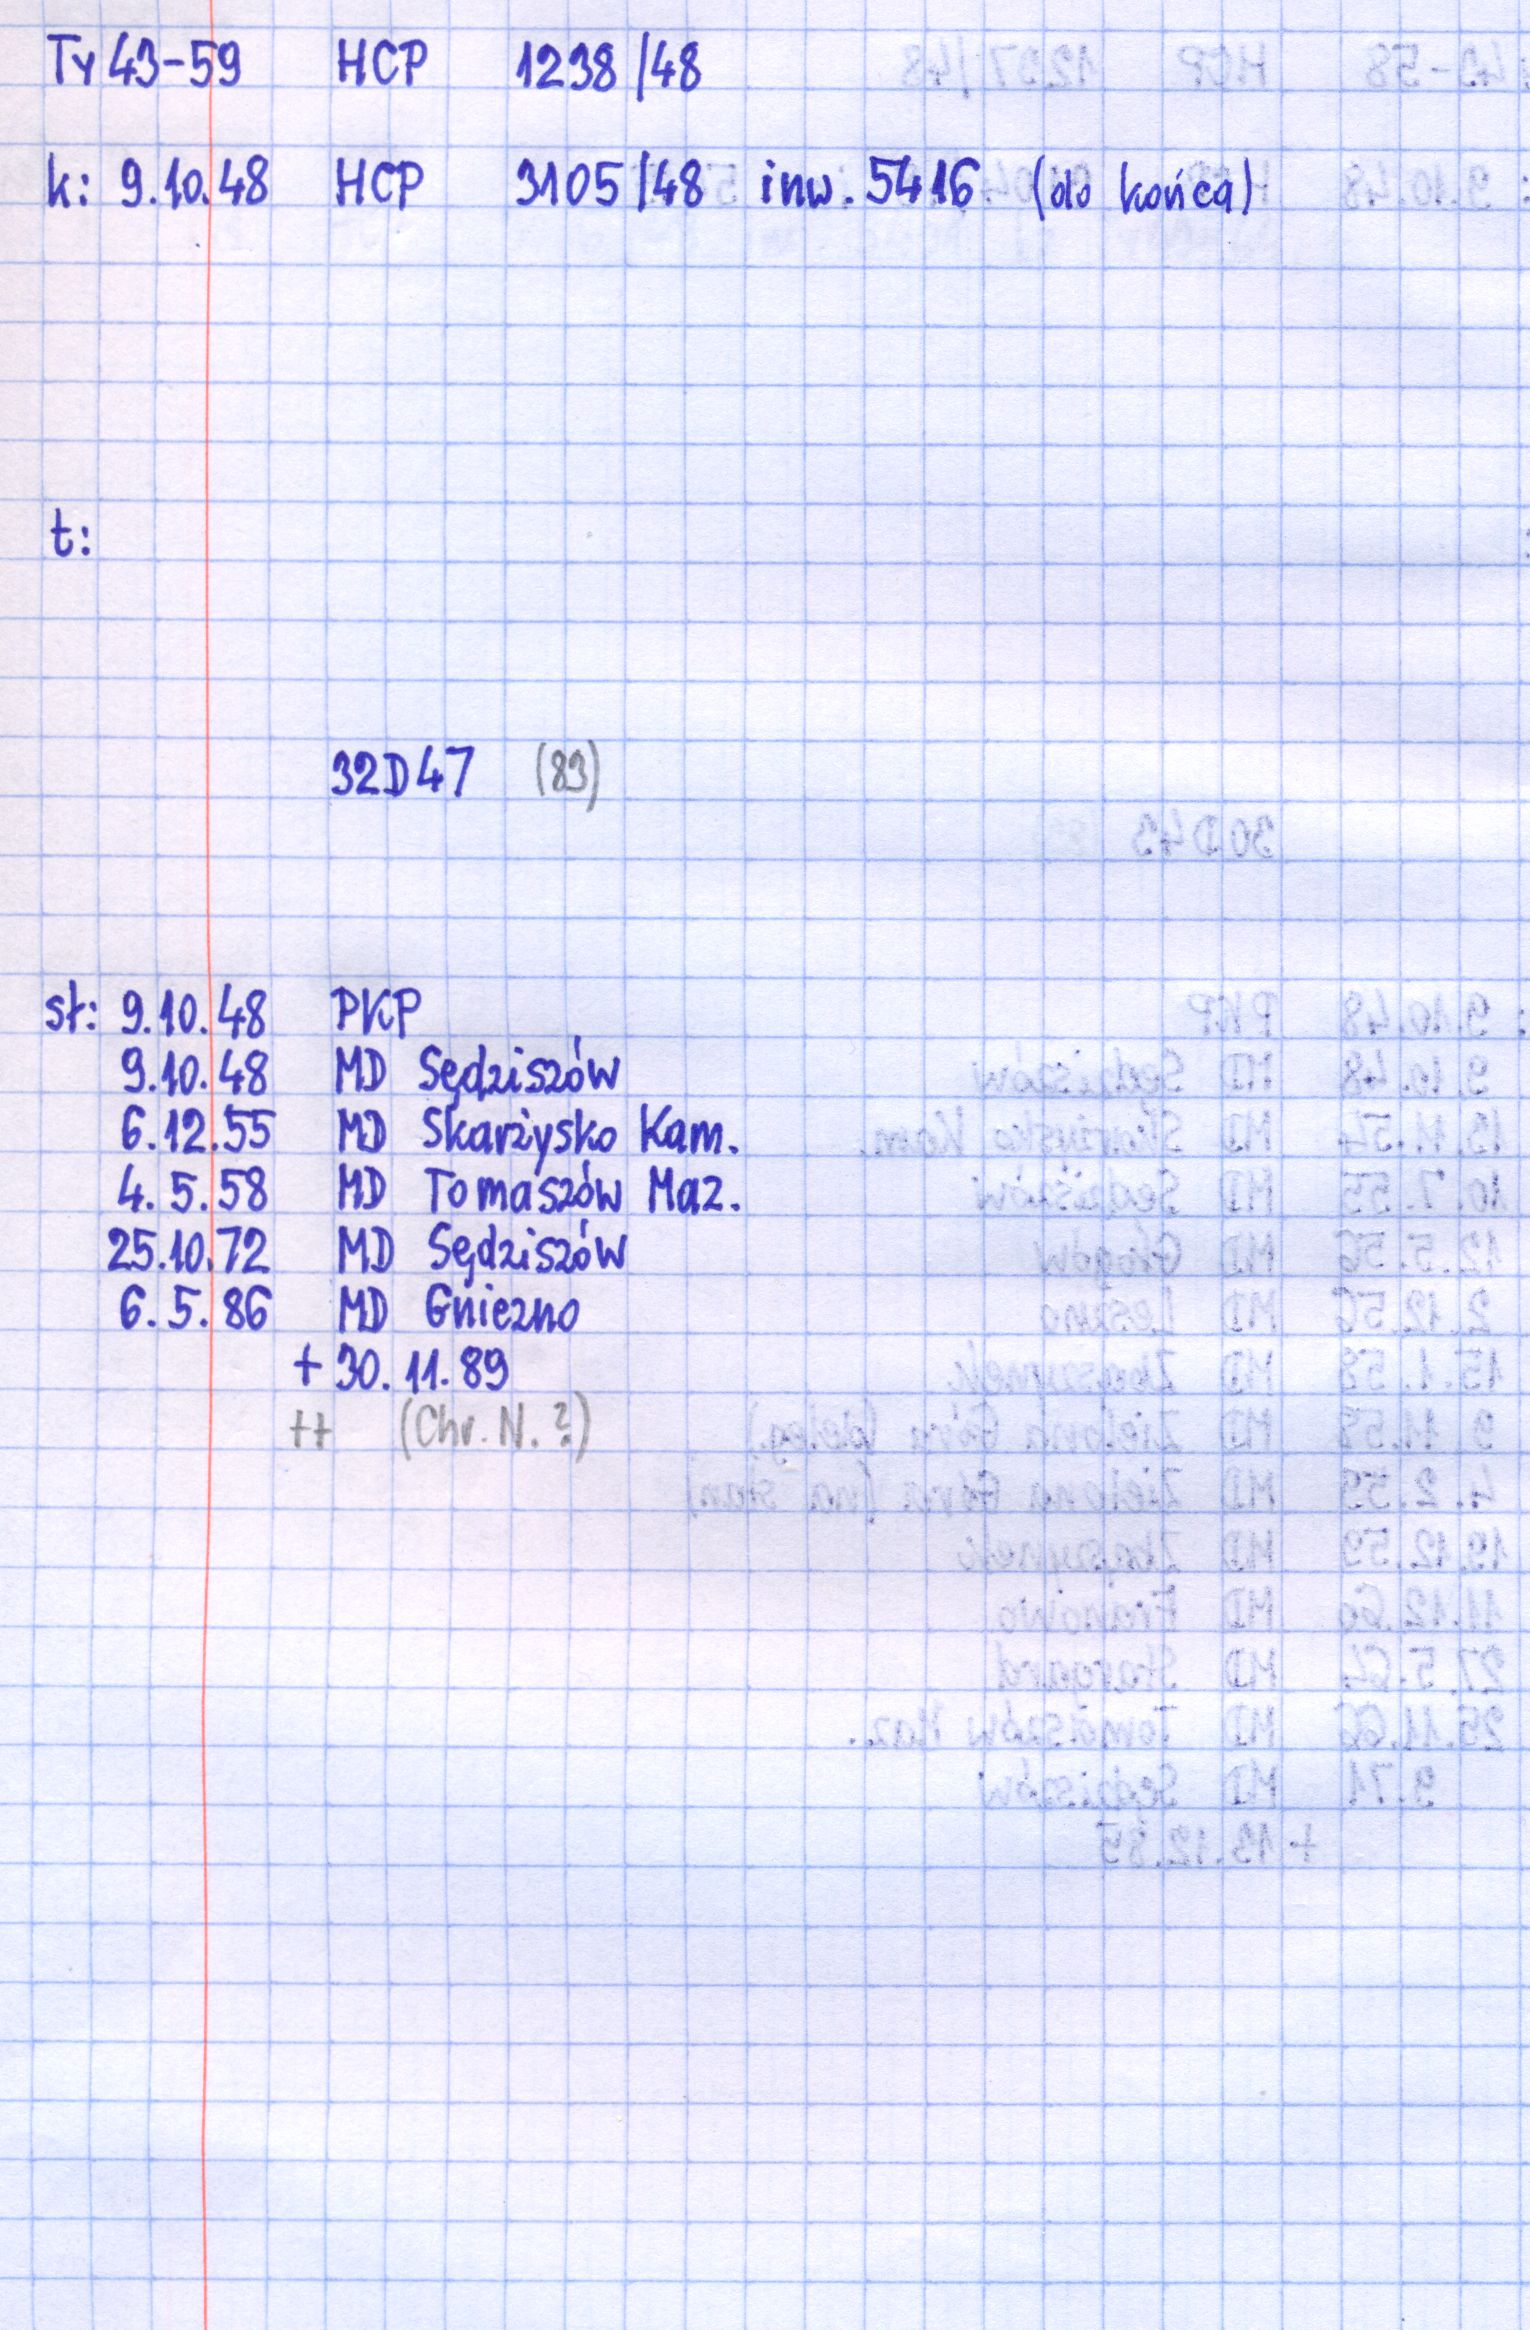 Ty 43-59 HCP 1238/48
k: 9.10.48 HCP 3105/48 inw. 5416 (do końca)
t:
32D47 (83)
st: 9.10.48 PKP
9.10.48 MD Sędziszów
6.12.55 MD Skarżysko Kam.
4.5.58 MD Tomaszów Maz.
25.10.72 MD Sędziszów
6.5.86 MD Gniezno
+ 30.11.89
++ (Chr. N. ?)